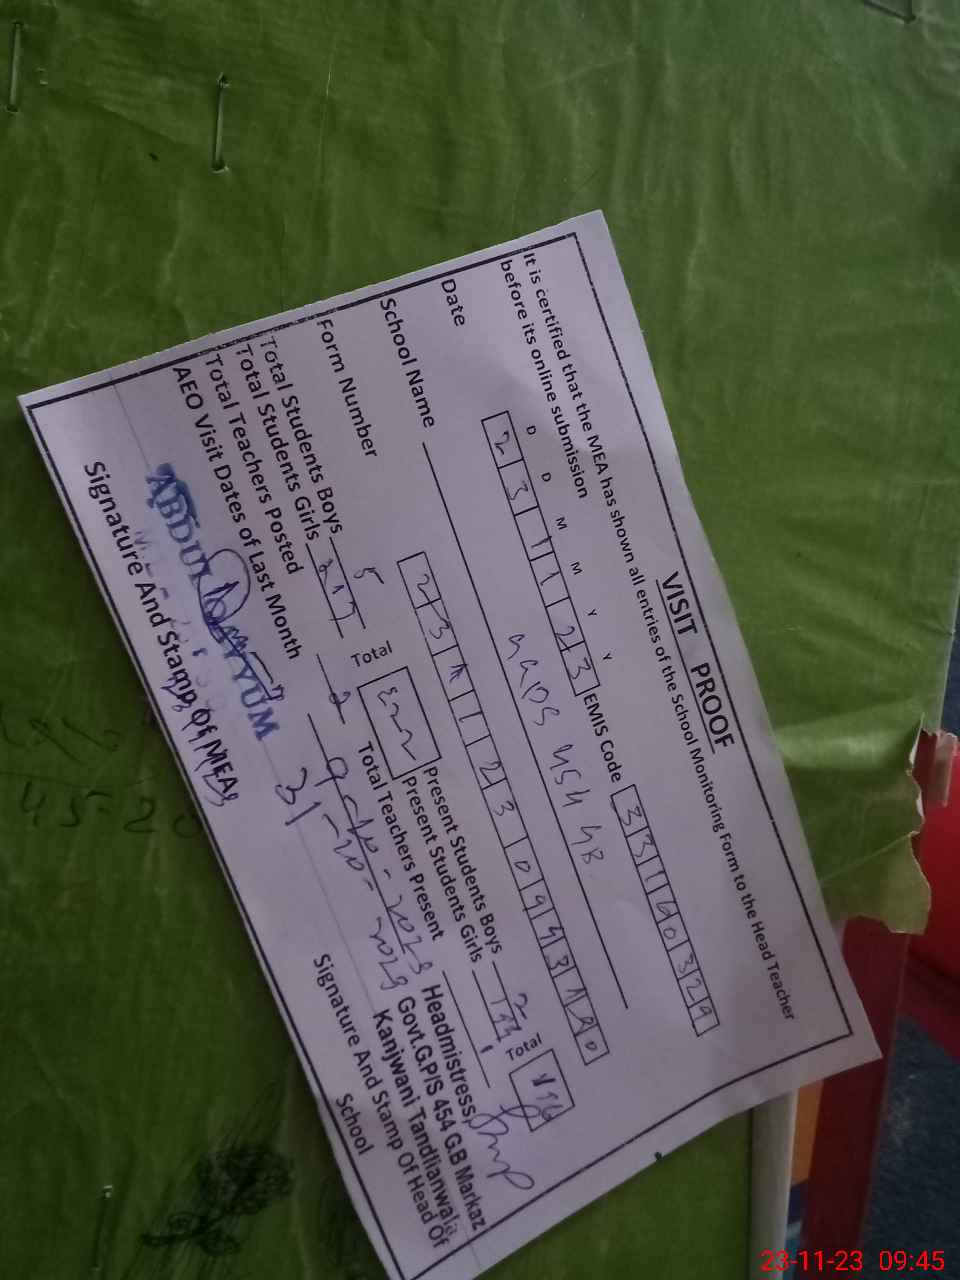 VISIT PROOF
It is certified that the MEA has shown all entries of the School Monitoring Form to the Head Teacher
before its online submission
D D M M Y Y
Date 2 3 1 1 2 3 EMIS Code 3 3 1 6 0 3 2 9
School Name GGPS 454 GB
Form Number 2 3 1 1 2 3 0 9 4 3
Total Students Boys 5 Present Students Boys 2
Total Students Girls 217 Total 222 Present Students Girls Total
Total Teachers Posted 2 Total Teachers Present
AEO Visit Dates of Last Month 9-10-2023
31-10-2023
ABDUL QAYYUM
Headmistress
Govt.G.P/S 454 G.B Markaz
Kanjwani Tandlianwala
Signature And Stamp Of MEA
Signature And Stamp Of Head Of
School
45-20
23-11-23 09:45